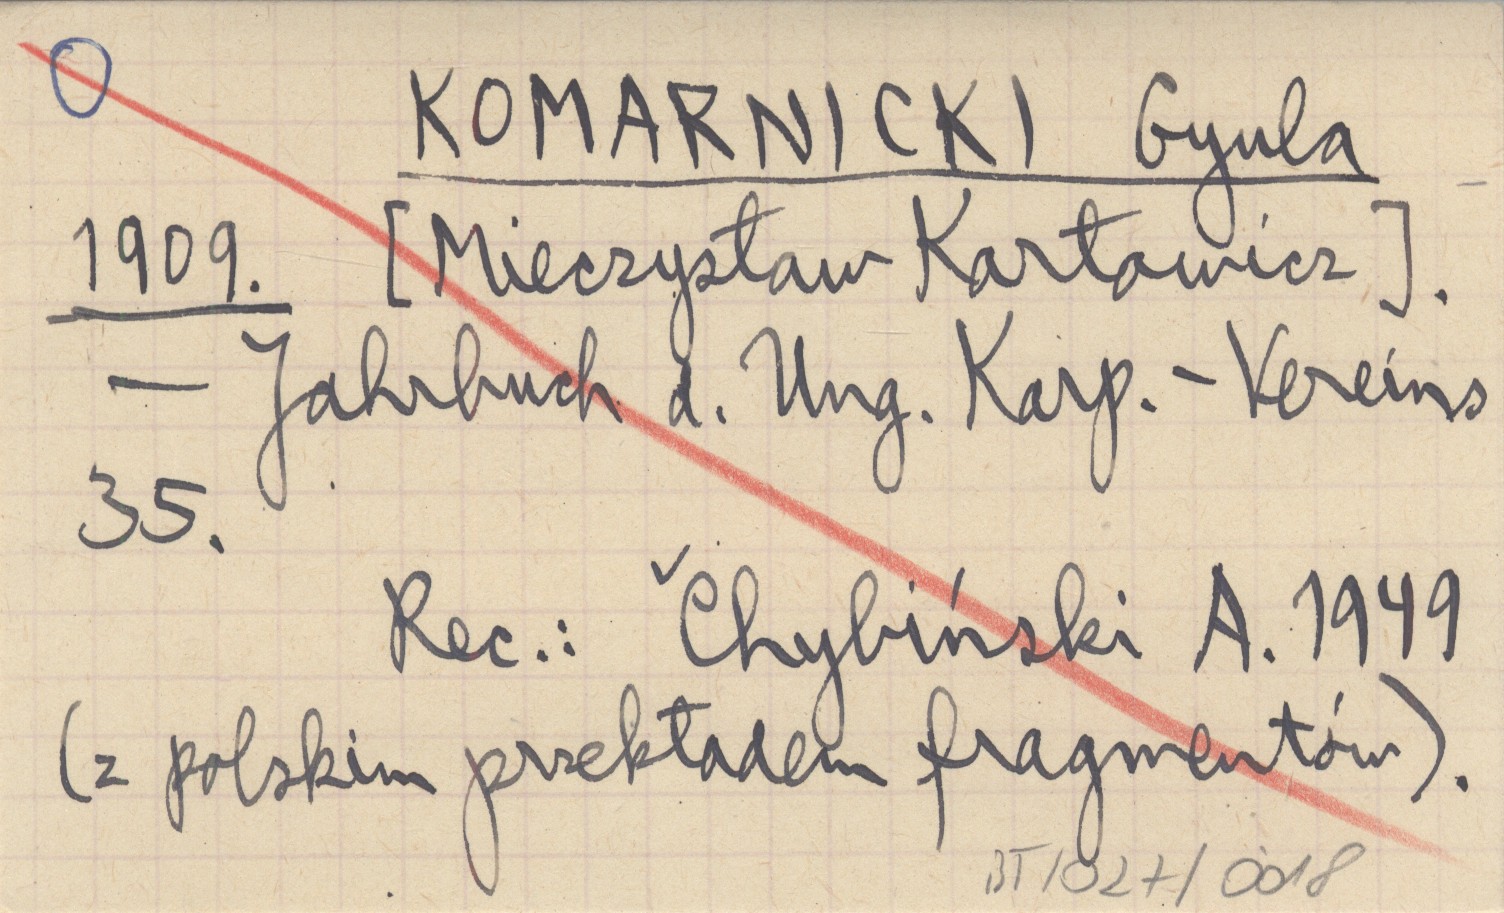 KOMARNICKI Gyula
1909. [Mieczysław Karłowicz].
— Jahrbuch d. Ung. Karp.-Vereins
35.
Rec.: Chybiński A. 1949
(z polskim przekładem fragmentów).
BT/027/0018